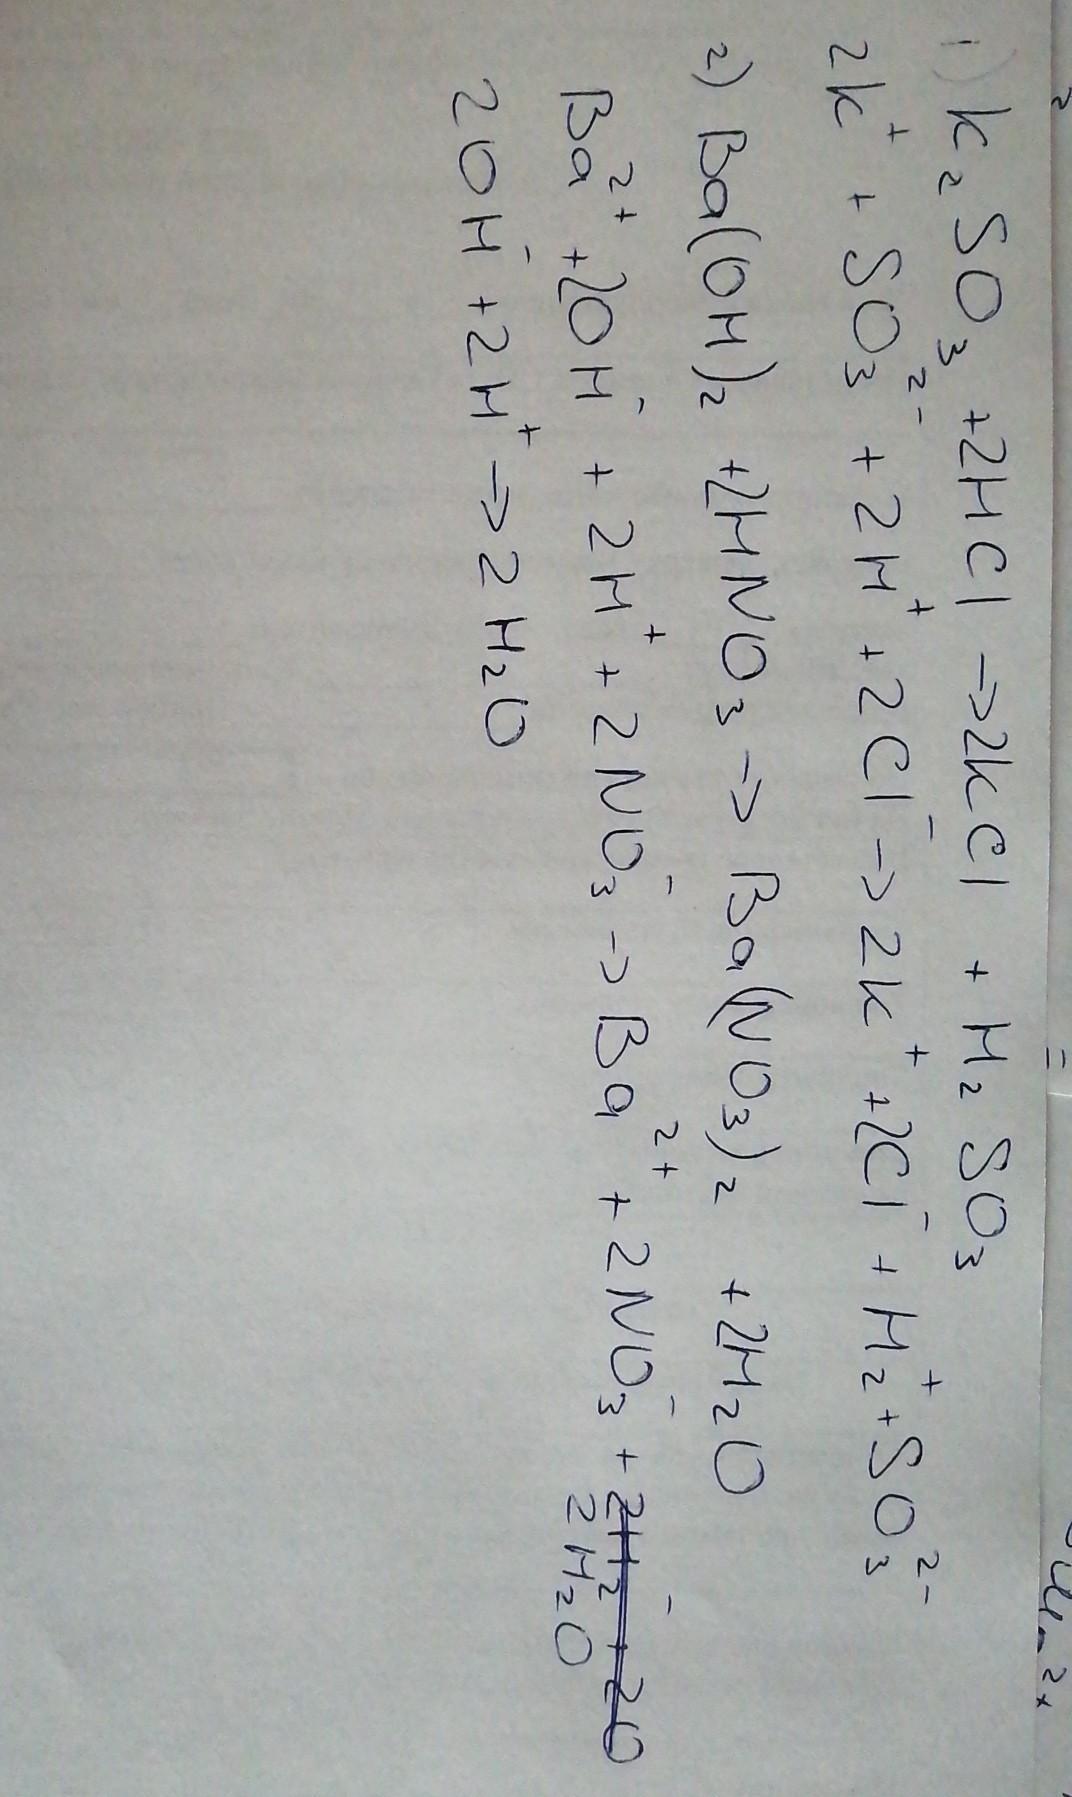 1) K₂SO₃ +2HCl →2KCl + H₂SO₃
2K⁺ + SO₃²⁻ + 2H⁺ +2Cl⁻→2K⁺ +2Cl⁻ + H₂⁺+SO₃²⁻
2) Ba(OH)₂ +2HNO₃ → Ba(NO₃)₂ +2H₂O
Ba²⁺ +2OH⁻ + 2H⁺ + 2NO₃⁻ → Ba²⁺ + 2NO₃⁻ + 2H₂O
2OH⁻ +2H⁺ → 2H₂O